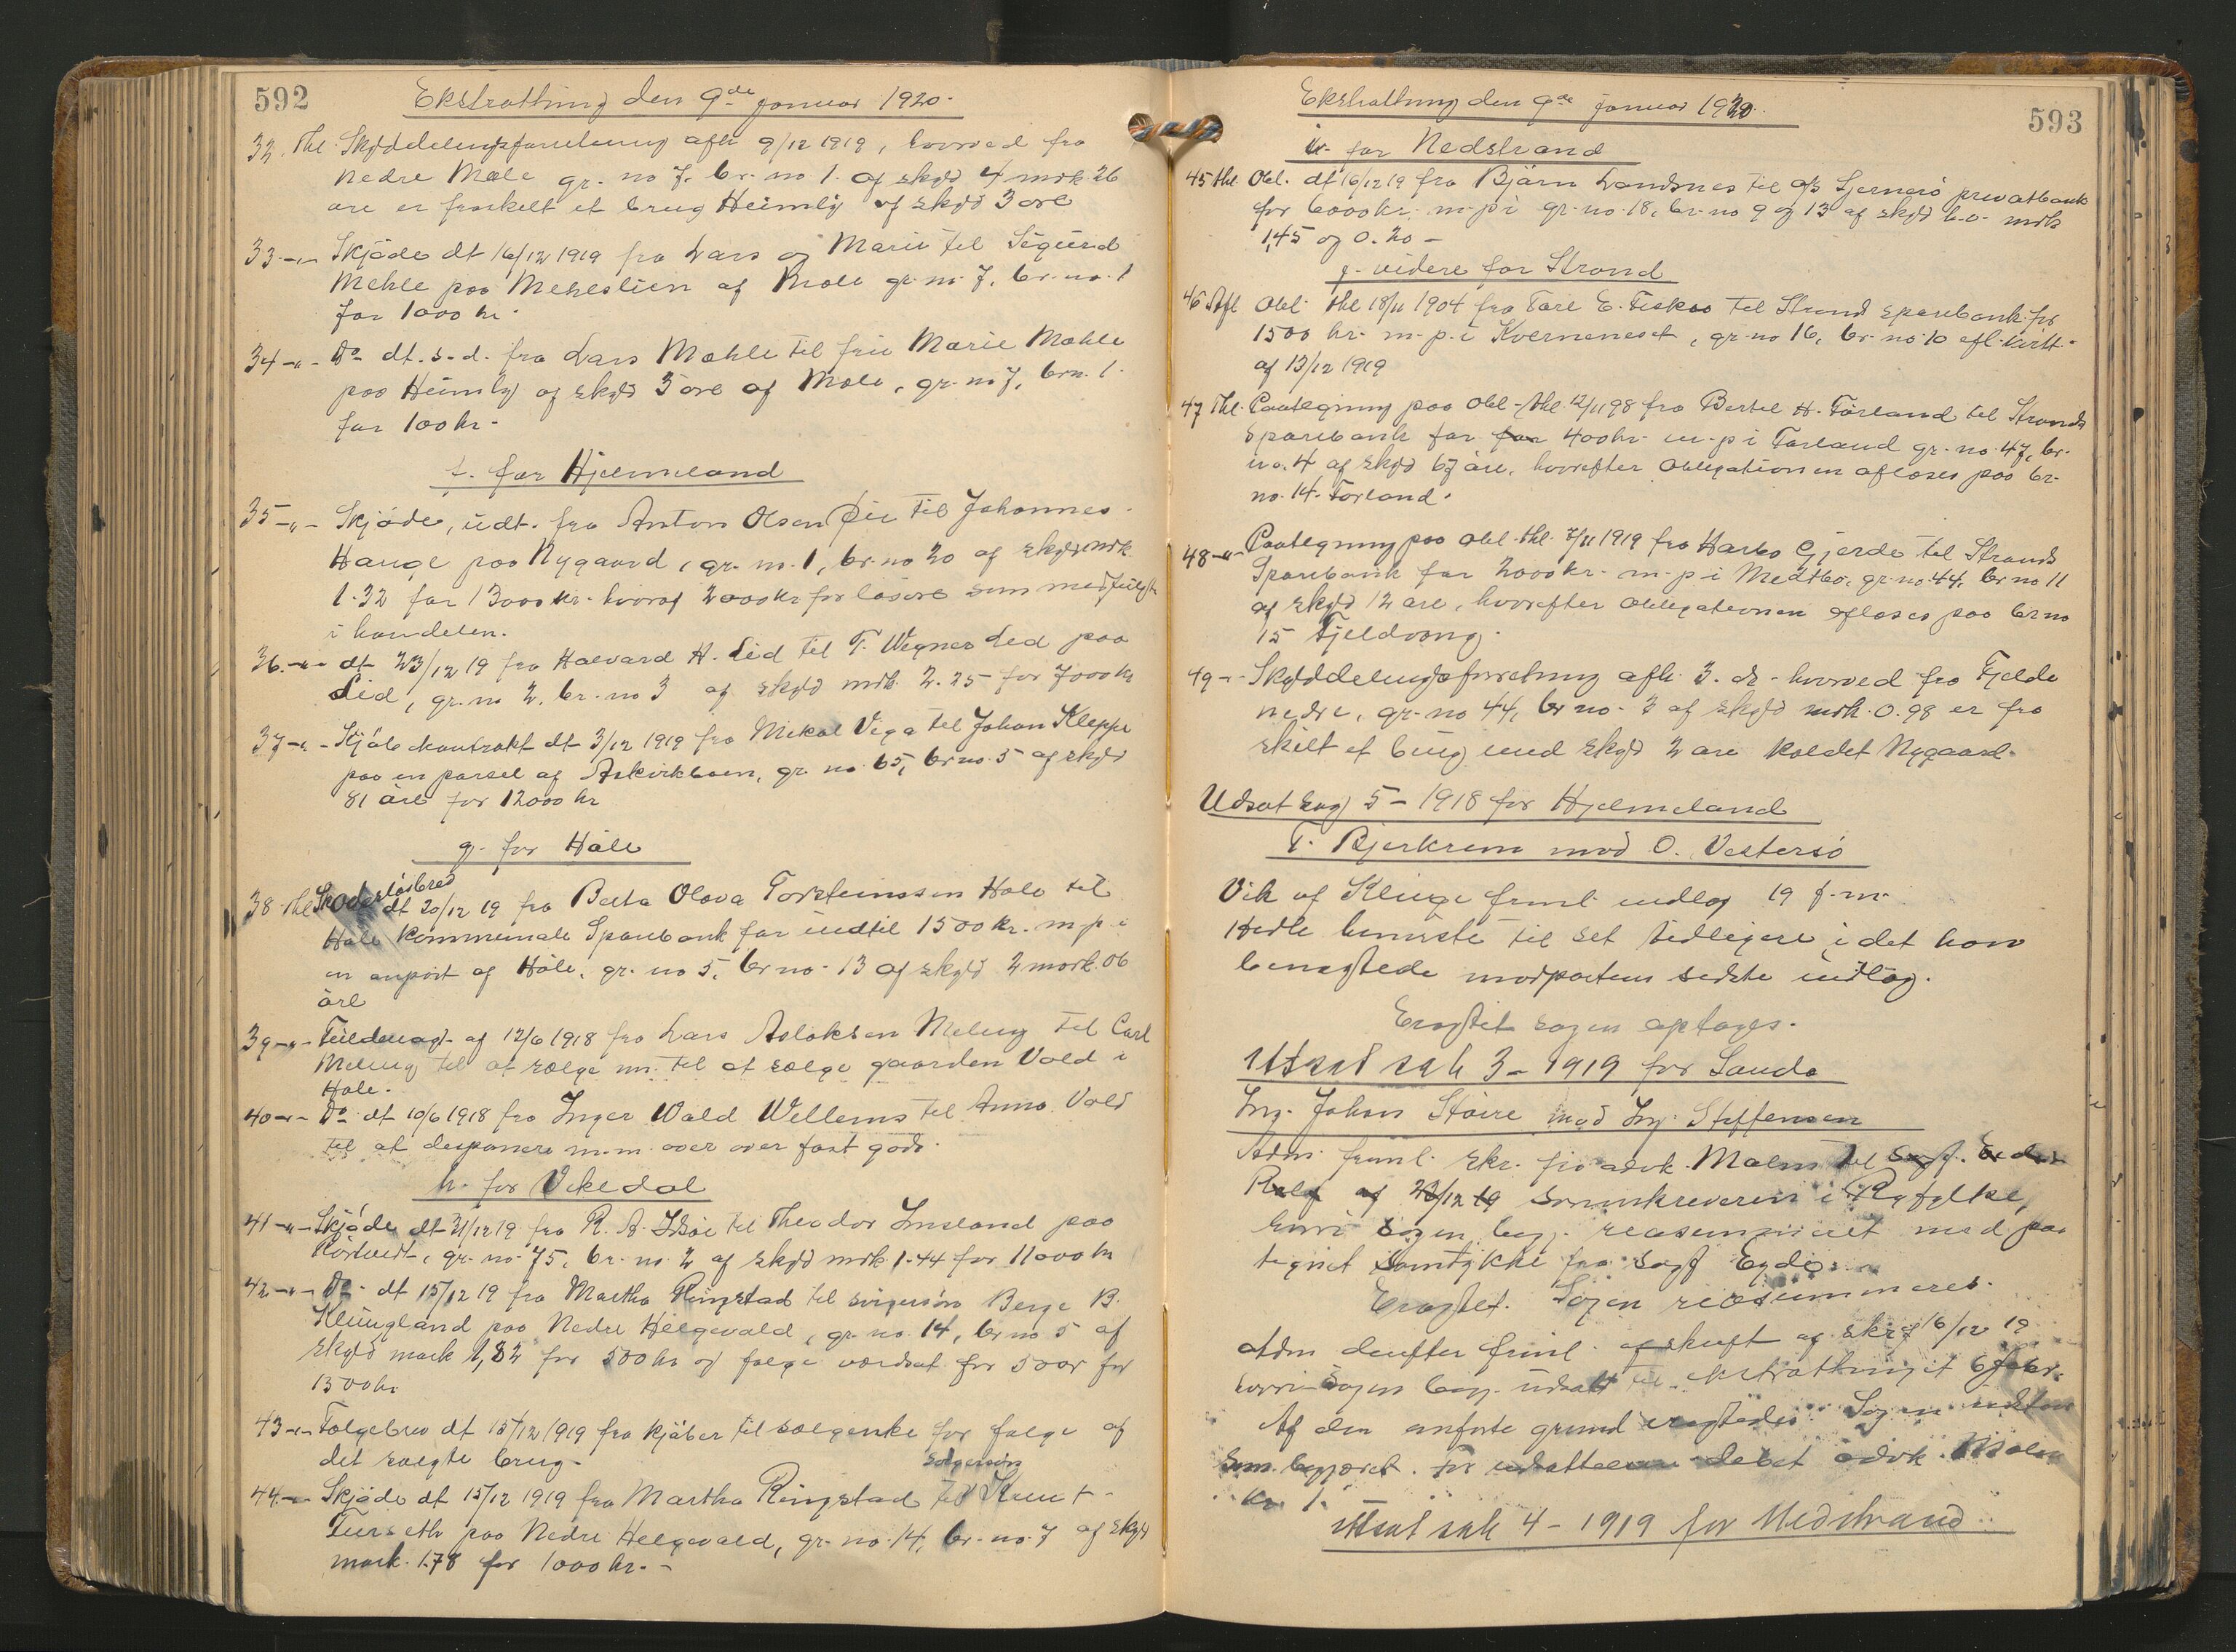 592
Ekstratthing den 9de januar 1920.
32. Thl. Skylddelingsforretning afh 9/12 1919, hvorved fra
nedre Mæle gr. no 7. br. no 1. af skyld 4 mrk. 26
øre er fraskilt et brug Heimly af skyld 3 øre
33 -"- Skjøde dt 16/12 1919 fra Lars og Marie til Sigurd
Mehle paa Mehleslien af Mæle gr. no. 7, br. no. 1
for 1000 kr.
34 -"- Do dt. s. d. fra Lars Mæhle til frue Marie Mæhle
paa Heimly af skyld 3 øre af Mæle, gr. no 7, brn. 1.
for 100 kr.
f. for Hjelmeland
35 -"- Skjøde, udt. fra Anton Olsen Øie til Johannes
Hauge paa Nygaard, gr. no. 1, br. no 20 af skyld mrk
1.32 for 13000 kr. hvoraf 2000 kr for løsøre som medfulgte
i handelen.
36. -"- dt 23/12 19 fra Halvard H. Lid til T. Wegner Lid paa
Lid, gr. no 2, br. no 3 af skyld mrk. 2.25 for 7000 kr
37 -"- Kjøbekontrakt dt 3/12 1919 fra Mikal Viga til Johan Kleppe
paa en parsel af Askvikbøen, gr. no. 65, br. no. 5 af skyld
81 øre for 12000 kr
g. for Høle
38 Thl Skadesløsbrev
dt 20/12 19 fra Berta Olava Torsteinssen Høle til
Høle Kommunale Sparebank for indtil 1500 kr. m. p. i
en anpart af Høle, gr. no 5, br no. 13 af skyld 2 mark 06
øre
39 -"- Fuldmagt af 12/6 1918 fra Lars Aslaksen Meling til Carl
Meling til at sælge m. til at sælge gaarden Vold i
Høle.
40 -"- Do dt 10/6 1918 fra Inger Wald Willems til Anna Vold
til at disponere m. m. over over fast gods.
h. for Vikedal
41 -"- Skjøde dt 31/12 19 fra R. A. til Theodor Imsland paa
gr. no. 75, br. no. 2 af skyld mrk. 1.44 for 11000 kr
42 -"- Do. dt 15/12 19 fra Martha Ringstad til svigersøn Berge B.
Klungland paa Nedre Helgevold, gr. no. 14, br no 5 af
skyld mark 1,82 for 500 kr og følge værdsat for 5 aar for
1500 kr
43 -"- Følgebrev dt 15/12 1919 fra kjøber til sælgerske for følge af
det solgte brug.
svigersøn
44 -"- Skjøde dt 15/12 1919 fra Martha Ringstad til Knut
paa Nedre Helgevold, gr. no. 14, br. no. 7 af skyld
mark. 1.78 for 1000 kr.
593
Ekstratthing den 9de januar 1920.
i. for Nedstrand
45 thl. Obl. dt 16/12 19 fra Bjärn Landsnes til a/s Sjernerö privatbank
for 6000 kr. m. p. i gr. no. 18, br. no 9 og 13 af skyld h. v. mrk
1,45 og 0.20 -
j. videre for Strand
46 Afl Obl. thl 18/11 1904 fra Tore E. Fiskaa til Strand sparebank for
1500 kr. m. p. i Kverneneset, gr. no 16, br. no 10 efl. kvitt.
af 13/12 1919
47 Thl. Paategning paa obl. thl. 12/11 98 fra Bertel H. Førland til Strands
Sparebank for for 400 kr. m. p. i Førland gr. no. 47, br.
no. 4 af skyld 67 øre, hvorefter obligationen afløses paa br.
no. 14. Førland.
48 -"- Paategning paa obl. thl. 7/11 1919 fra Gjerde til Strands
Sparebank for 2000 kr. m. p. i gr. no. 44, br no 11
af skyld 12 øre, hvorefter obligationen afløses paa br no
15 Fjeldvang.
49 - - Skylddelingsforretning afh. 3. ds. hvorved fra Fjelde
nedre, gr. no 44, br no. 3 af skyld mrk. 0.98 er fra
skilt et brug med skyld 2 øre kaldet Nygaard.
Udsat sag 5 - 1918 for Hjelmeland
T. Bjerkrem mod O. Vestersö
Vik af Kluge freml. indlæg 19 f. m.
Hedle henviste til set tidligere i det han
benegtede modpartens sidste indlæg.
Eragtet sagen optages.
Utsat sak 3 - 1919 for Sauda
Ing. Johan Støre mod Ing. Steffensen
Adm. freml. skr. fra advk. Malm til Sagf.
af 23/12 19 sorenskriveren i Ryfylke,
hvori sagen beg. reasummeret med paa
tegnet samtykke fra Sagf Egdø.
Eragtet. Sagen reasummeres.
Adm derefter freml. afskrift af skr af 16/12 19
hvori sagen beg. udsatt til ekstratthinget 6 febr.
Af den anførte grund eragtedes: Sagen
som begjæret. For udsættelsen debet advk. Malm
kr 1.
Utsat sak 4 - 1919 for Nedstrand